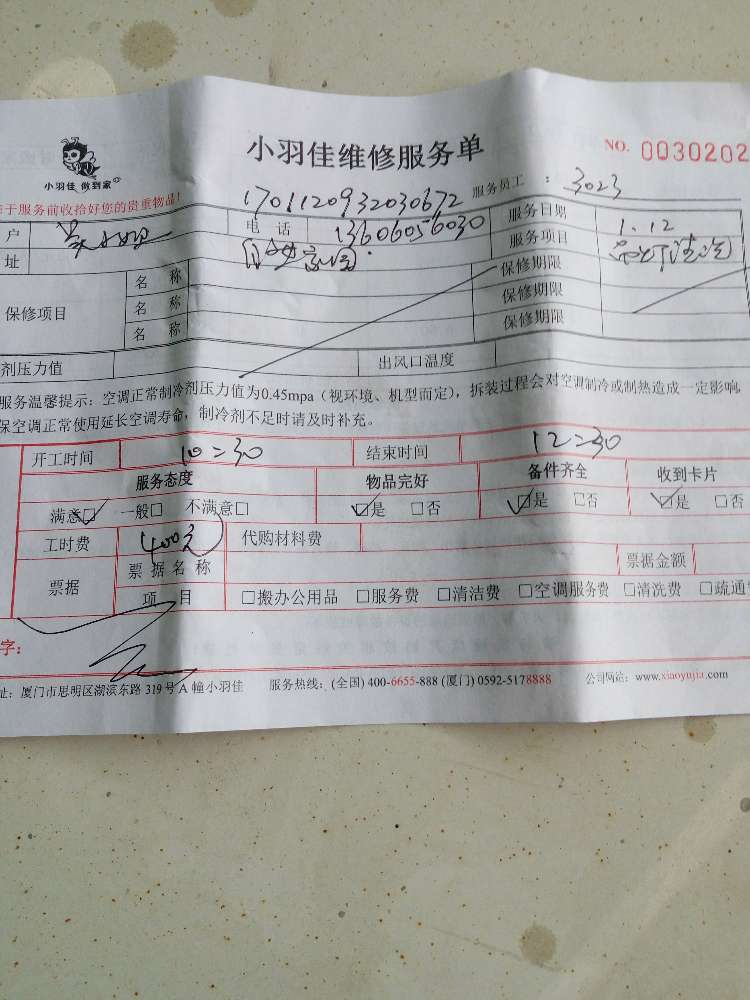 小羽佳维修服务单
NO. 0030202
小羽佳 做到家
于服务前收拾好您的贵重物品!
1701120932030672
服务员工 : 3023
户
电 话 13606056030
服务日期 1.12
址
服务项目
保修项目
名 称
保修期限
名 称
保修期限
名 称
保修期限
剂压力值
出风口温度
服务温馨提示:空调正常制冷剂压力值为0.45mpa(视环境、机型而定),拆装过程会对空调制冷或制热造成一定影响,
保空调正常使用延长空调寿命,制冷剂不足时请及时补充。
开工时间 10:30 结束时间 12:30
服务态度 物品完好 备件齐全 收到卡片
满意☑ 一般□ 不满意□ ☑是 □否 ☑是 □否 ☑是 □否
工时费 400元 代购材料费
票据
票据名称
票据金额
项 目 □搬办公用品 □服务费 □清洁费 □空调服务费 □清洗费 □疏通
字:
址:厦门市思明区湖滨东路 319 号 A 幢小羽佳 服务热线:(全国) 400-6655-888 (厦门) 0592-5178888 公司网站:www.xiaoyujia.com